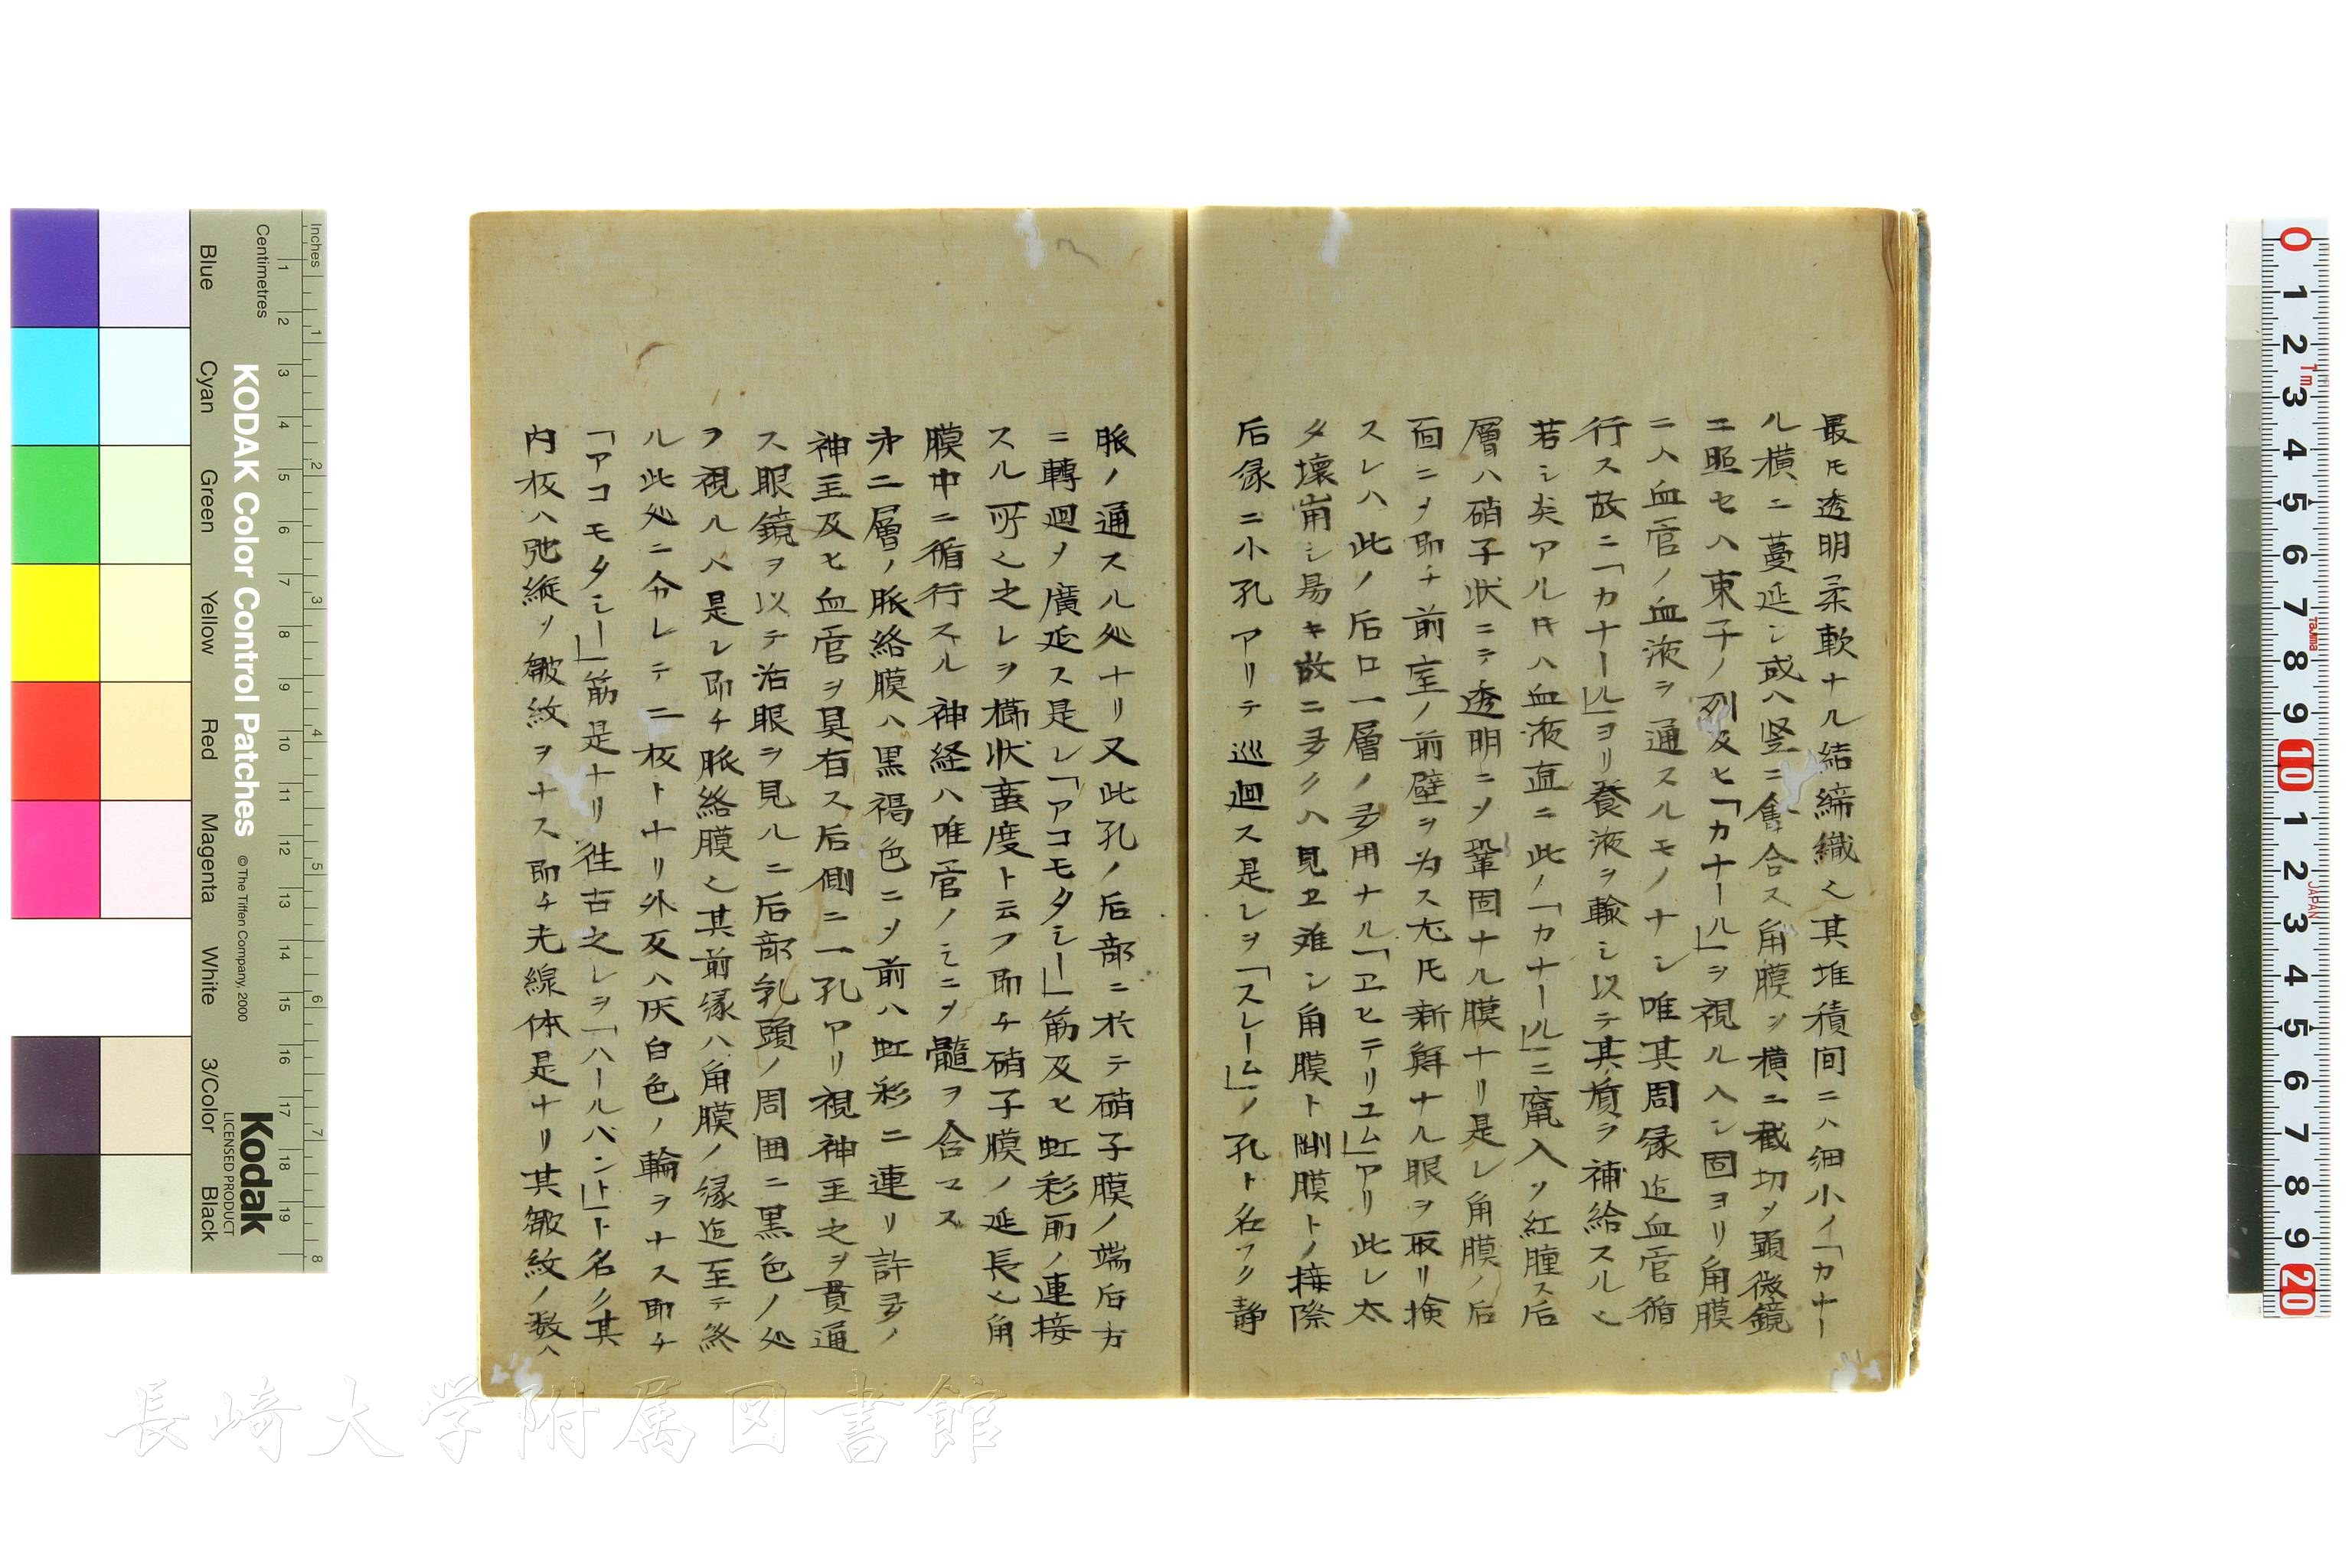 最モ透明柔軟ナル結締織也其堆積间ニハ细小ノ「カナー
ル横ニ蔓延シ或ハ竖ニ集合ス角膜ヲ横ニ截切ノ顕微鏡
ニ照セハ東子ノ列及ヒ「カナール」ヲ視ルヘシ固ヨリ角膜
ニハ血管ノ血液ヲ通スルモノナシ唯其周縁迄血管循
行ス故ニ「カナール」ヨリ養液ヲ輸シ以テ其質ヲ補給スル也
若シ炎アル片ハ血液直ニ此ノ「カナール」ニ竄入ソ紅腫ス后
層ハ硝子状ニテ透明ニソ鞏固ナル膜ナリ是レ角膜ノ后
面ニソ即チ前室ノ前壁ヲ为ス尤モ新鮮ナル眼ヲ取リ検
スレハ此ノ后ロ一層ノ多用ナル「ヱヒテリユム」アリ此レ太
タ壊崩シ易キ故ニ多クハ見ヱ难シ角膜ト剛膜トノ接際
后縁ニ小孔アリテ巡廻ス是レヲ「スレーム」ノ孔ト名フク静
脈ノ通スル処ナリ又此孔ノ后部ニ於テ硝子膜ノ端后方
ニ轉廻ソ廣延ス是レ「アコモタシー」筋及ヒ虹彩而ノ連接
スル所也之レヲ櫛状蛮度ト云フ即チ硝子膜ノ延長也角
膜中ニ循行スル神経ハ唯管ノミニソ髓ヲ含マス
才二層ノ脈絡膜ハ黒褐色ニソ前ハ虹彩ニ連リ許多ノ
神圣及ヒ血管ヲ具有ス后側ニ一孔アリ視神圣之ヲ貫通
ス眼鏡ヲ以テ活眼ヲ見ルニ后部乳頭ノ周囲ニ黒色ノ処
ヲ視ルヘ是レ即チ脈絡膜也其前縁ハ角膜ノ縁迄至テ終
ル此処ニ分レテ二板トナリ外板ハ灰白色ノ輪ヲナス即チ
「アコモタシー」筋是ナリ徃古之レヲ「ハールバント」ト名ク其
内板ハ弛縦ソ皺紋ヲナス即チ光線体是ナリ其皺紋ノ数ハ
KODAK Color Control Patches
© The Tiffen Company, 2000
Kodak
LICENSED PRODUCT
Inches
Centimetres
Blue
Cyan
Green
Yellow
Red
Magenta
White
3/Color
Black
長崎大学附属図書館